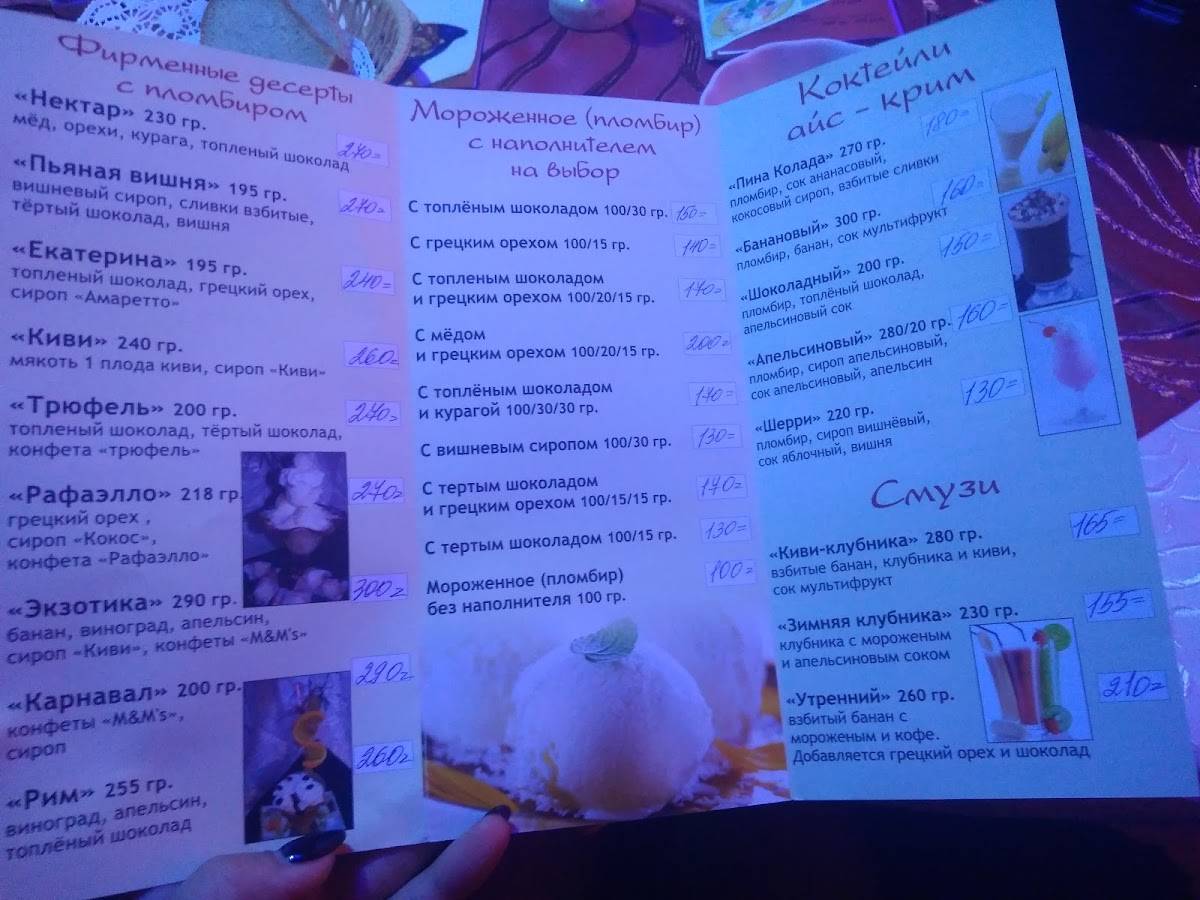 Фирменные десерты
с пломбиром
«Нектар» 230 гр.
мёд, орехи, курага, топленый шоколад
270=
«Пьяная вишня» 195 гр.
вишневый сироп, сливки взбитые,
тёртый шоколад, вишня
270=
«Екатерина» 195 гр.
топленый шоколад, грецкий орех,
сироп «Амаретто»
240=
«Киви» 240 гр.
мякоть 1 плода киви, сироп «Киви»
260=
«Трюфель» 200 гр.
топленый шоколад, тёртый шоколад,
конфета «трюфель»
270=
«Рафаэлло» 218 гр.
грецкий орех ,
сироп «Кокос»,
конфета «Рафаэлло»
270=
«Экзотика» 290 гр.
банан, виноград, апельсин,
сироп «Киви», конфеты «M&M's»
300=
«Карнавал» 200 гр.
конфеты «M&M's»,
сироп
290=
«Рим» 255 гр.
виноград, апельсин,
топлёный шоколад
260=
Мороженное (пломбир)
с наполнителем
на выбор
С топлёным шоколадом 100/30 гр. 150=
С грецким орехом 100/15 гр. 140=
С топленым шоколадом
и грецким орехом 100/20/15 гр. 170=
С мёдом
и грецким орехом 100/20/15 гр. 200=
С топлёным шоколадом
и курагой 100/30/30 гр. 170=
С вишневым сиропом 100/30 гр. 130=
С тертым шоколадом
и грецким орехом 100/15/15 гр. 170=
С тертым шоколадом 100/15 гр. 130=
Мороженное (пломбир)
без наполнителя 100 гр. 100=
Коктейли
айс - крим
«Пина Колада» 270 гр. 180=
пломбир, сок ананасовый,
кокосовый сироп, взбитые сливки
«Банановый» 300 гр. 160=
пломбир, банан, сок мультифрукт
«Шоколадный» 200 гр. 150=
пломбир, топлёный шоколад,
апельсиновый сок
«Апельсиновый» 280/20 гр. 160=
пломбир, сироп апельсиновый,
сок апельсиновый, апельсин
«Шерри» 220 гр. 130=
пломбир, сироп вишнёвый,
сок яблочный, вишня
Смузи
«Киви-клубника» 280 гр. 165=
взбитые банан, клубника и киви,
сок мультифрукт
«Зимняя клубника» 230 гр. 155=
клубника с мороженым
и апельсиновым соком
«Утренний» 260 гр. 210=
взбитый банан с
мороженым и кофе.
Добавляется грецкий орех и шоколад